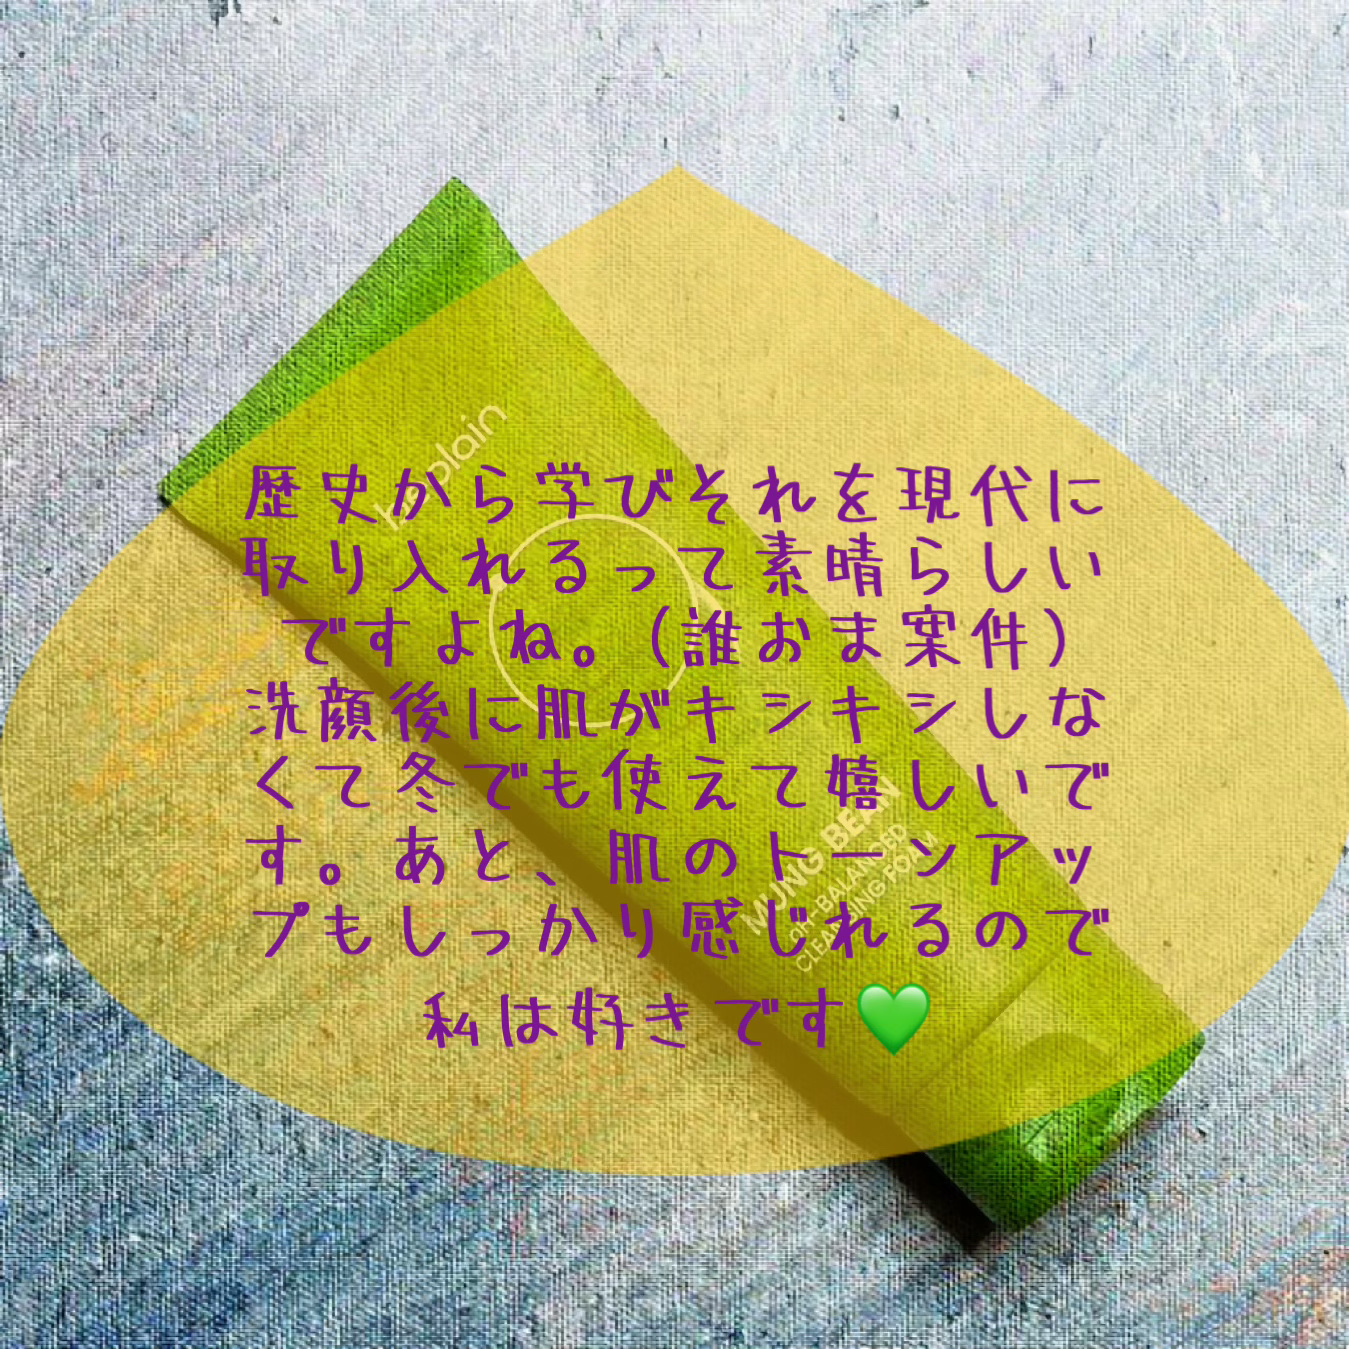 be plain
歴史から学びそれを現代に
取り入れるって素晴らしい
ですよね。(誰おま案件)
洗顔後に肌がキシキシしな
くて冬でも使えて嬉しいで
す。あと、肌のトーンアッ
プもしっかり感じれるので
私は好きです💚
MUNG BEAN
pH-BALANCED
CLEANSING FOAM